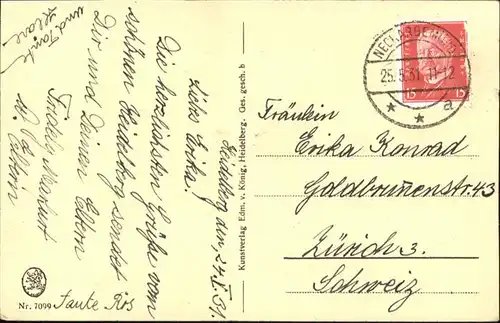 Heidelberg den, 24.V.31.
Liebe Erika!
Die herzlichsten Grüße vom
schönen Heidelberg sendet
Dir und Deinen Eltern
Friedl
u. Eltern
und Tante
Tante Ros
Kunstverlag Edm. v. König, Heidelberg. - Ges. gesch. b
Nr. 7099
25.5.31. 11-12
a
15 15
Fräulein
Erika Konrad
Goldbrunnenstr. 43
Zürich 3.
Schweiz